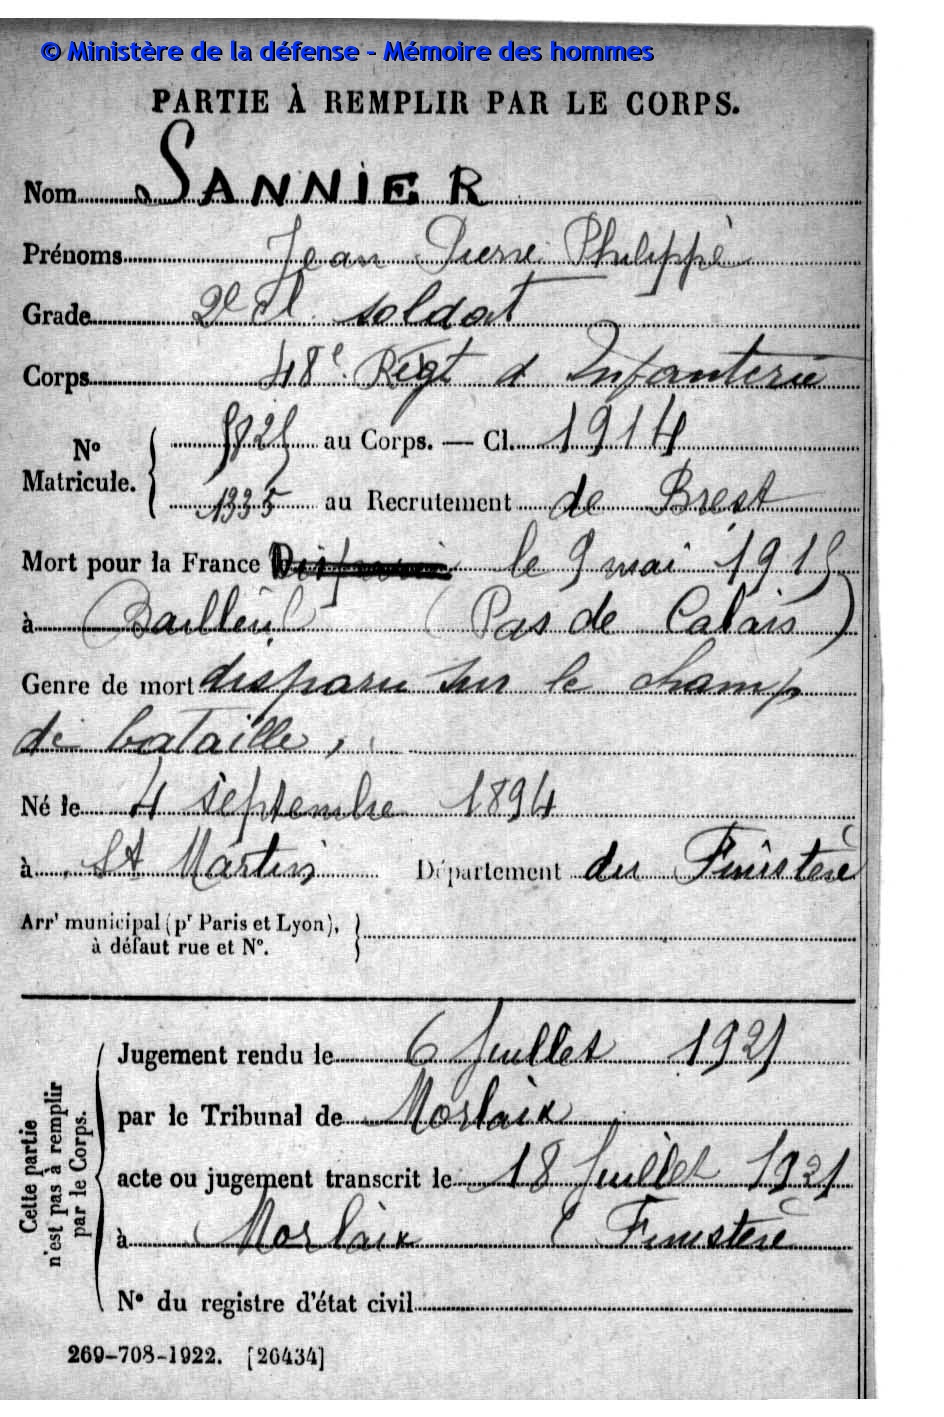 © Ministère de la défense - Mémoire des hommes
PARTIE À REMPLIR PAR LE CORPS.
Nom SANNIER
Prénoms Jean Pierre Philippe
Grade 2e cl. soldat
Corps 48e Régt d'Infanterie
No Matricule. 5825 au Corps. — Cl. 1914
1335 au Recrutement de Brest
Mort pour la France le 9 mai 1915
à Bailleul (Pas de Calais)
Genre de mort disparu sur le champ
de bataille,
Né le 4 septembre 1894
à St Martin Département du Finistère
Arrt municipal (pr Paris et Lyon),
à défaut rue et No.
Cette partie n'est pas à remplir par le Corps.
Jugement rendu le 6 Juillet 1921
par le Tribunal de Morlaix
acte ou jugement transcrit le 18 Juillet 1921
à Morlaix (Finistère
No du registre d'état civil
269-708-1922. [26434]